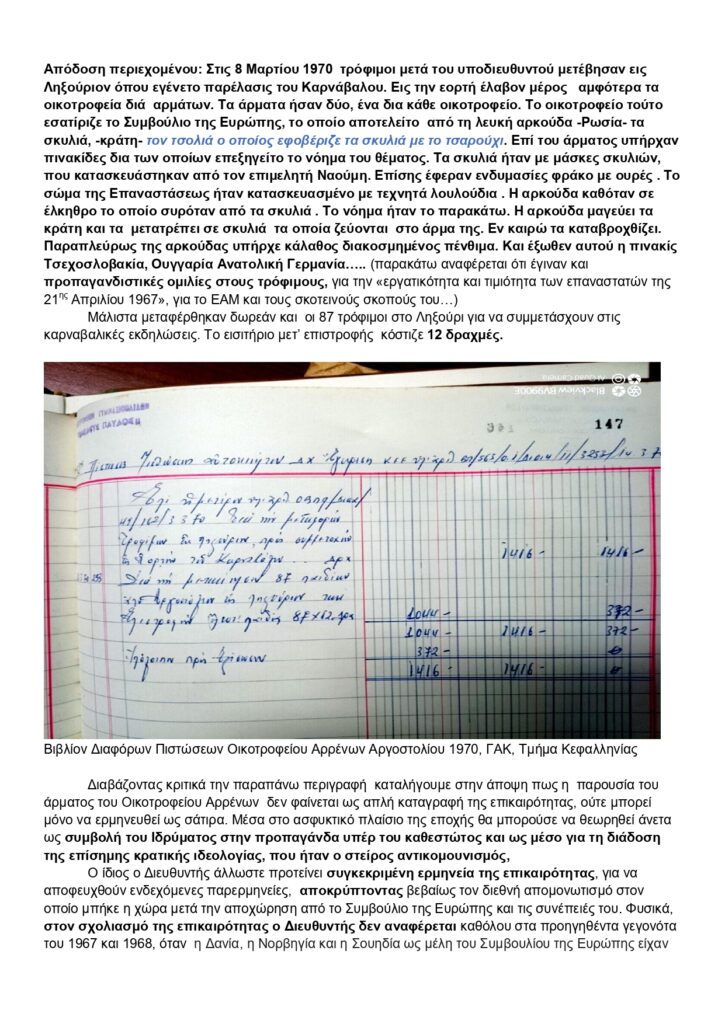 Απόδοση περιεχομένου: Στις 8 Μαρτίου 1970 τρόφιμοι μετά του υποδιευθυντού μετέβησαν εις
Ληξούριον όπου εγένετο παρέλασις του Καρνάβαλου. Εις την εορτή έλαβον μέρος αμφότερα τα
οικοτροφεία διά αρμάτων. Τα άρματα ήσαν δύο, ένα δια κάθε οικοτροφείο. Το οικοτροφείο τούτο
εσατίριζε το Συμβούλιο της Ευρώπης, το οποίο αποτελείτο από τη λευκή αρκούδα -Ρωσία- τα
σκυλιά, -κράτη- τον τσολιά ο οποίος εφοβέριζε τα σκυλιά με το τσαρούχι. Επί του άρματος υπήρχαν
πινακίδες δια των οποίων επεξηγείτο το νόημα του θέματος. Τα σκυλιά ήταν με μάσκες σκυλιών,
που κατασκευάστηκαν από τον επιμελητή Ναούμη. Επίσης έφεραν ενδυμασίες φράκο με ουρές . Το
σώμα της Επαναστάσεως ήταν κατασκευασμένο με τεχνητά λουλούδια . Η αρκούδα καθόταν σε
έλκηθρο το οποίο συρόταν από τα σκυλιά . Το νόημα ήταν το παρακάτω. Η αρκούδα μαγεύει τα
κράτη και τα μετατρέπει σε σκυλιά τα οποία ζεύονται στο άρμα της. Εν καιρώ τα καταβροχθίζει.
Παραπλεύρως της αρκούδας υπήρχε κάλαθος διακοσμημένος πένθιμα. Και έξωθεν αυτού η πινακίς
Τσεχοσλοβακία, Ουγγαρία Ανατολική Γερμανία….. (παρακάτω αναφέρεται ότι έγιναν και
προπαγανδιστικές ομιλίες στους τρόφιμους, για την «εργατικότητα και τιμιότητα των επαναστατών της
21ης Απριλίου 1967», για το ΕΑΜ και τους σκοτεινούς σκοπούς του…)
Μάλιστα μεταφέρθηκαν δωρεάν και οι 87 τρόφιμοι στο Ληξούρι για να συμμετάσχουν στις
καρναβαλικές εκδηλώσεις. Το εισιτήριο μετ’ επιστροφής κόστιζε 12 δραχμές.
Blackview BV9900E
AI Quad Camera
147
1416 - 1416 -
87 παιδίων
1044 - 372 -
1044 - 1416 - 372 -
372 - 0
1416 - 1416 - 0
Βιβλίον Διαφόρων Πιστώσεων Οικοτροφείου Αρρένων Αργοστολίου 1970, ΓΑΚ, Τμήμα Κεφαλληνίας
Διαβάζοντας κριτικά την παραπάνω περιγραφή καταλήγουμε στην άποψη πως η παρουσία του
άρματος του Οικοτροφείου Αρρένων δεν φαίνεται ως απλή καταγραφή της επικαιρότητας, ούτε μπορεί
μόνο να ερμηνευθεί ως σάτιρα. Μέσα στο ασφυκτικό πλαίσιο της εποχής θα μπορούσε να θεωρηθεί άνετα
ως συμβολή του Ιδρύματος στην προπαγάνδα υπέρ του καθεστώτος και ως μέσο για τη διάδοση
της επίσημης κρατικής ιδεολογίας, που ήταν ο στείρος αντικομουνισμός,
Ο ίδιος ο Διευθυντής άλλωστε προτείνει συγκεκριμένη ερμηνεία της επικαιρότητας, για να
αποφευχθούν ενδεχόμενες παρερμηνείες, αποκρύπτοντας βεβαίως τον διεθνή απομονωτισμό στον
οποίο μπήκε η χώρα μετά την αποχώρηση από το Συμβούλιο της Ευρώπης και τις συνέπειές του. Φυσικά,
στον σχολιασμό της επικαιρότητας ο Διευθυντής δεν αναφέρεται καθόλου στα προηγηθέντα γεγονότα
του 1967 και 1968, όταν η Δανία, η Νορβηγία και η Σουηδία ως μέλη του Συμβουλίου της Ευρώπης είχαν